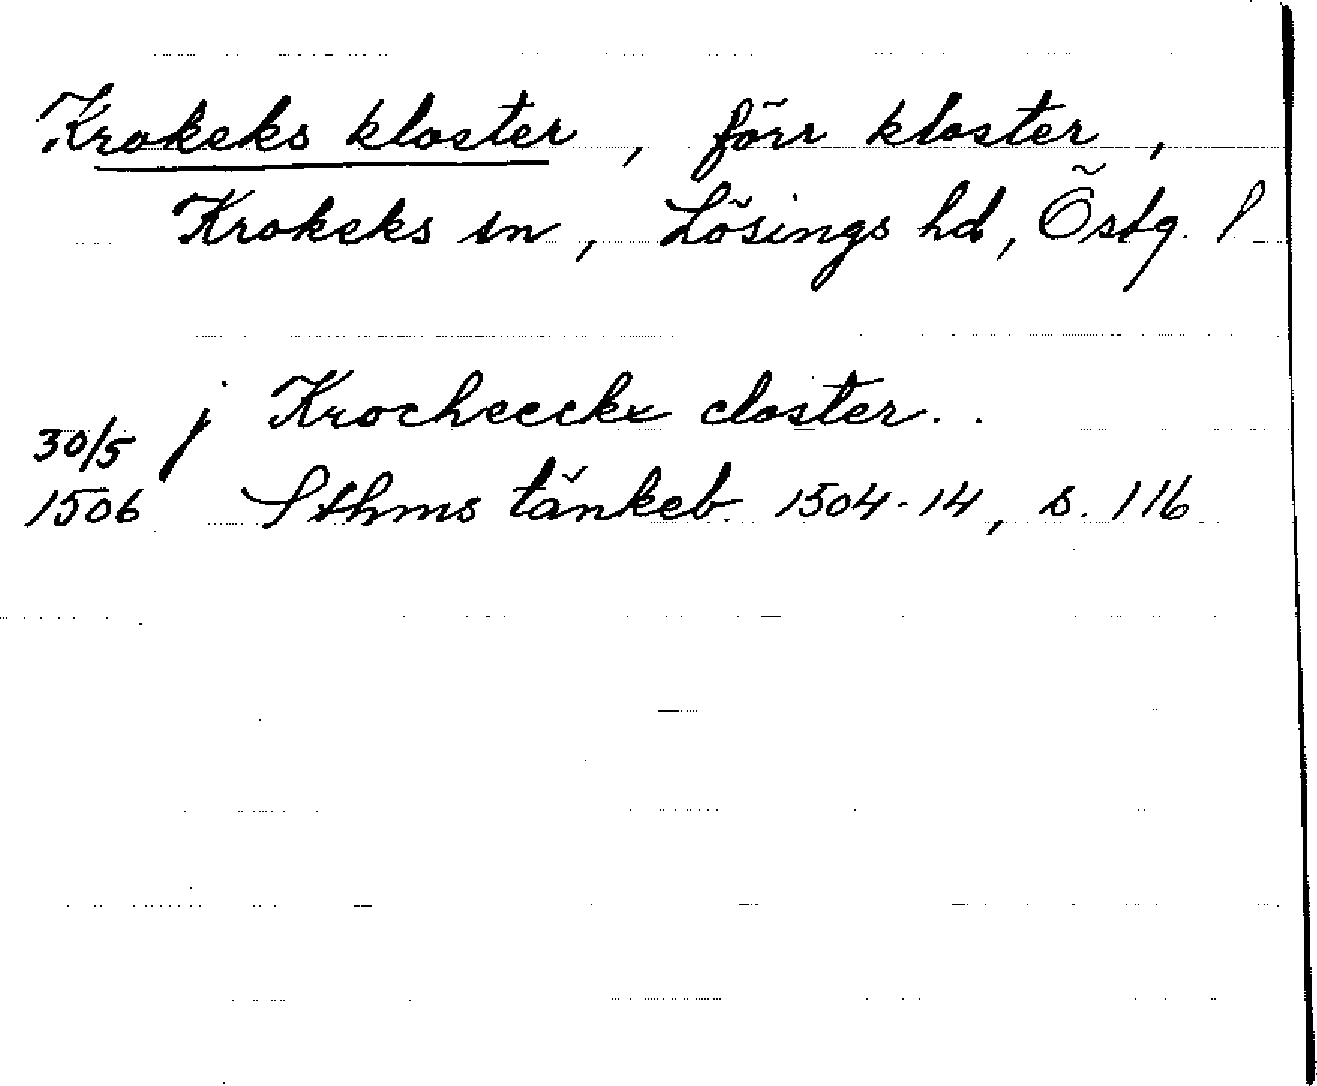 Krokeks kloster, förr kloster,
Krokeks sn, Lösings hd, Östg. l
j Krocheeckx closter..
30/5
1506 Sthms tänkeb. 1504-14, s. 116